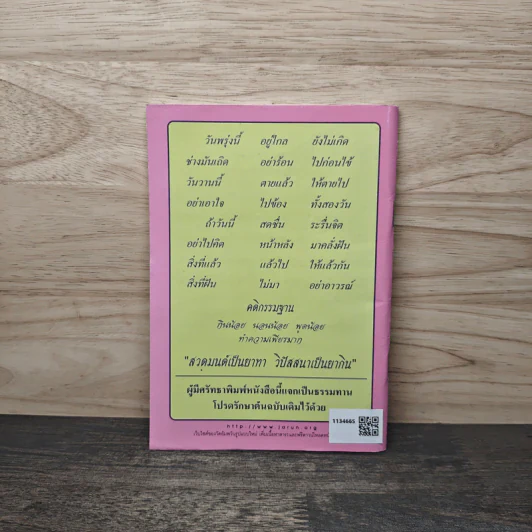 วันพรุ่งนี้ อยู่ไกล ยังไม่เกิด
ช่างมันเถิด อย่าร้อน ไปก่อนไข้
วันวานนี้ ตายแล้ว ให้ตายไป
อย่าเอาใจ ไปข้อง ทั้งสองวัน
ถ้าวันนี้ สดชื่น ระรื่นจิต
อย่าไปคิด หน้าหลัง มาคลั่งฝัน
สิ่งที่แล้ว แล้วไป ให้แล้วกัน
สิ่งที่ฝัน ไม่มา อย่าอาวรณ์
คติกรรมฐาน
กินน้อย นอนน้อย พูดน้อย
ทำความเพียรมาก
"สวดมนต์เป็นยาทา วิปัสสนาเป็นยากิน"
ผู้มีศรัทธาพิมพ์หนังสือนี้แจกเป็นธรรมทาน
โปรดรักษาต้นฉบับเดิมไว้ด้วย
1134665
http://www.jarun.org